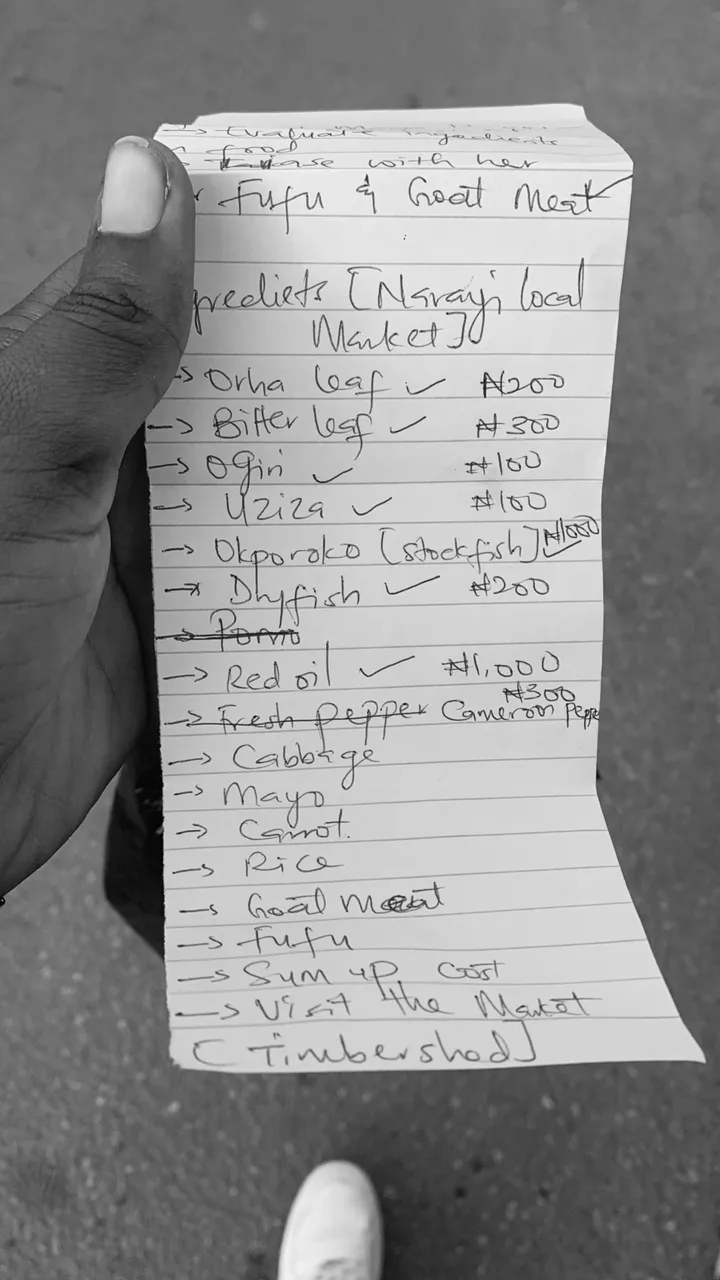 → Evaluate ingredients
food
with her
Fufu & Goat Meat ✓
grediets [Narayi local
Market]
→ Orha leaf ✓ ₦200
→ Bitter leaf ✓ ₦300
→ Ogiri ✓ ₦100
→ Uziza ✓ ₦100
→ Okporoko [stockfish] ✓ ₦1000
→ Dryfish ✓ ₦200
→ Pomo
→ Red oil ✓ ₦1,000
₦300
→ Fresh pepper Cameron peppe
→ Cabbage
→ Mayo
→ Carrot.
→ Rice
→ Goat meat
→ Fufu
→ Sum up Cost
→ Visit the Market
[Timbershed]